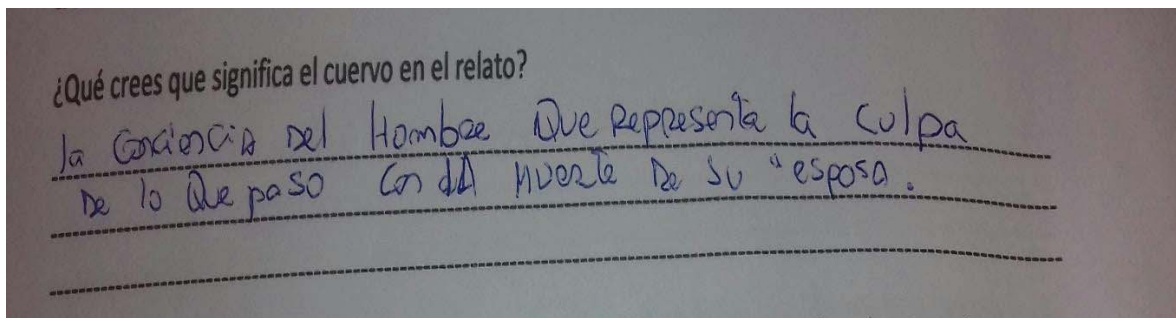 ¿Qué crees que significa el cuervo en el relato?
la conciencia Del Hombre Que Representa la Culpa
De lo Que paso Con la Muerte De Su "esposa.